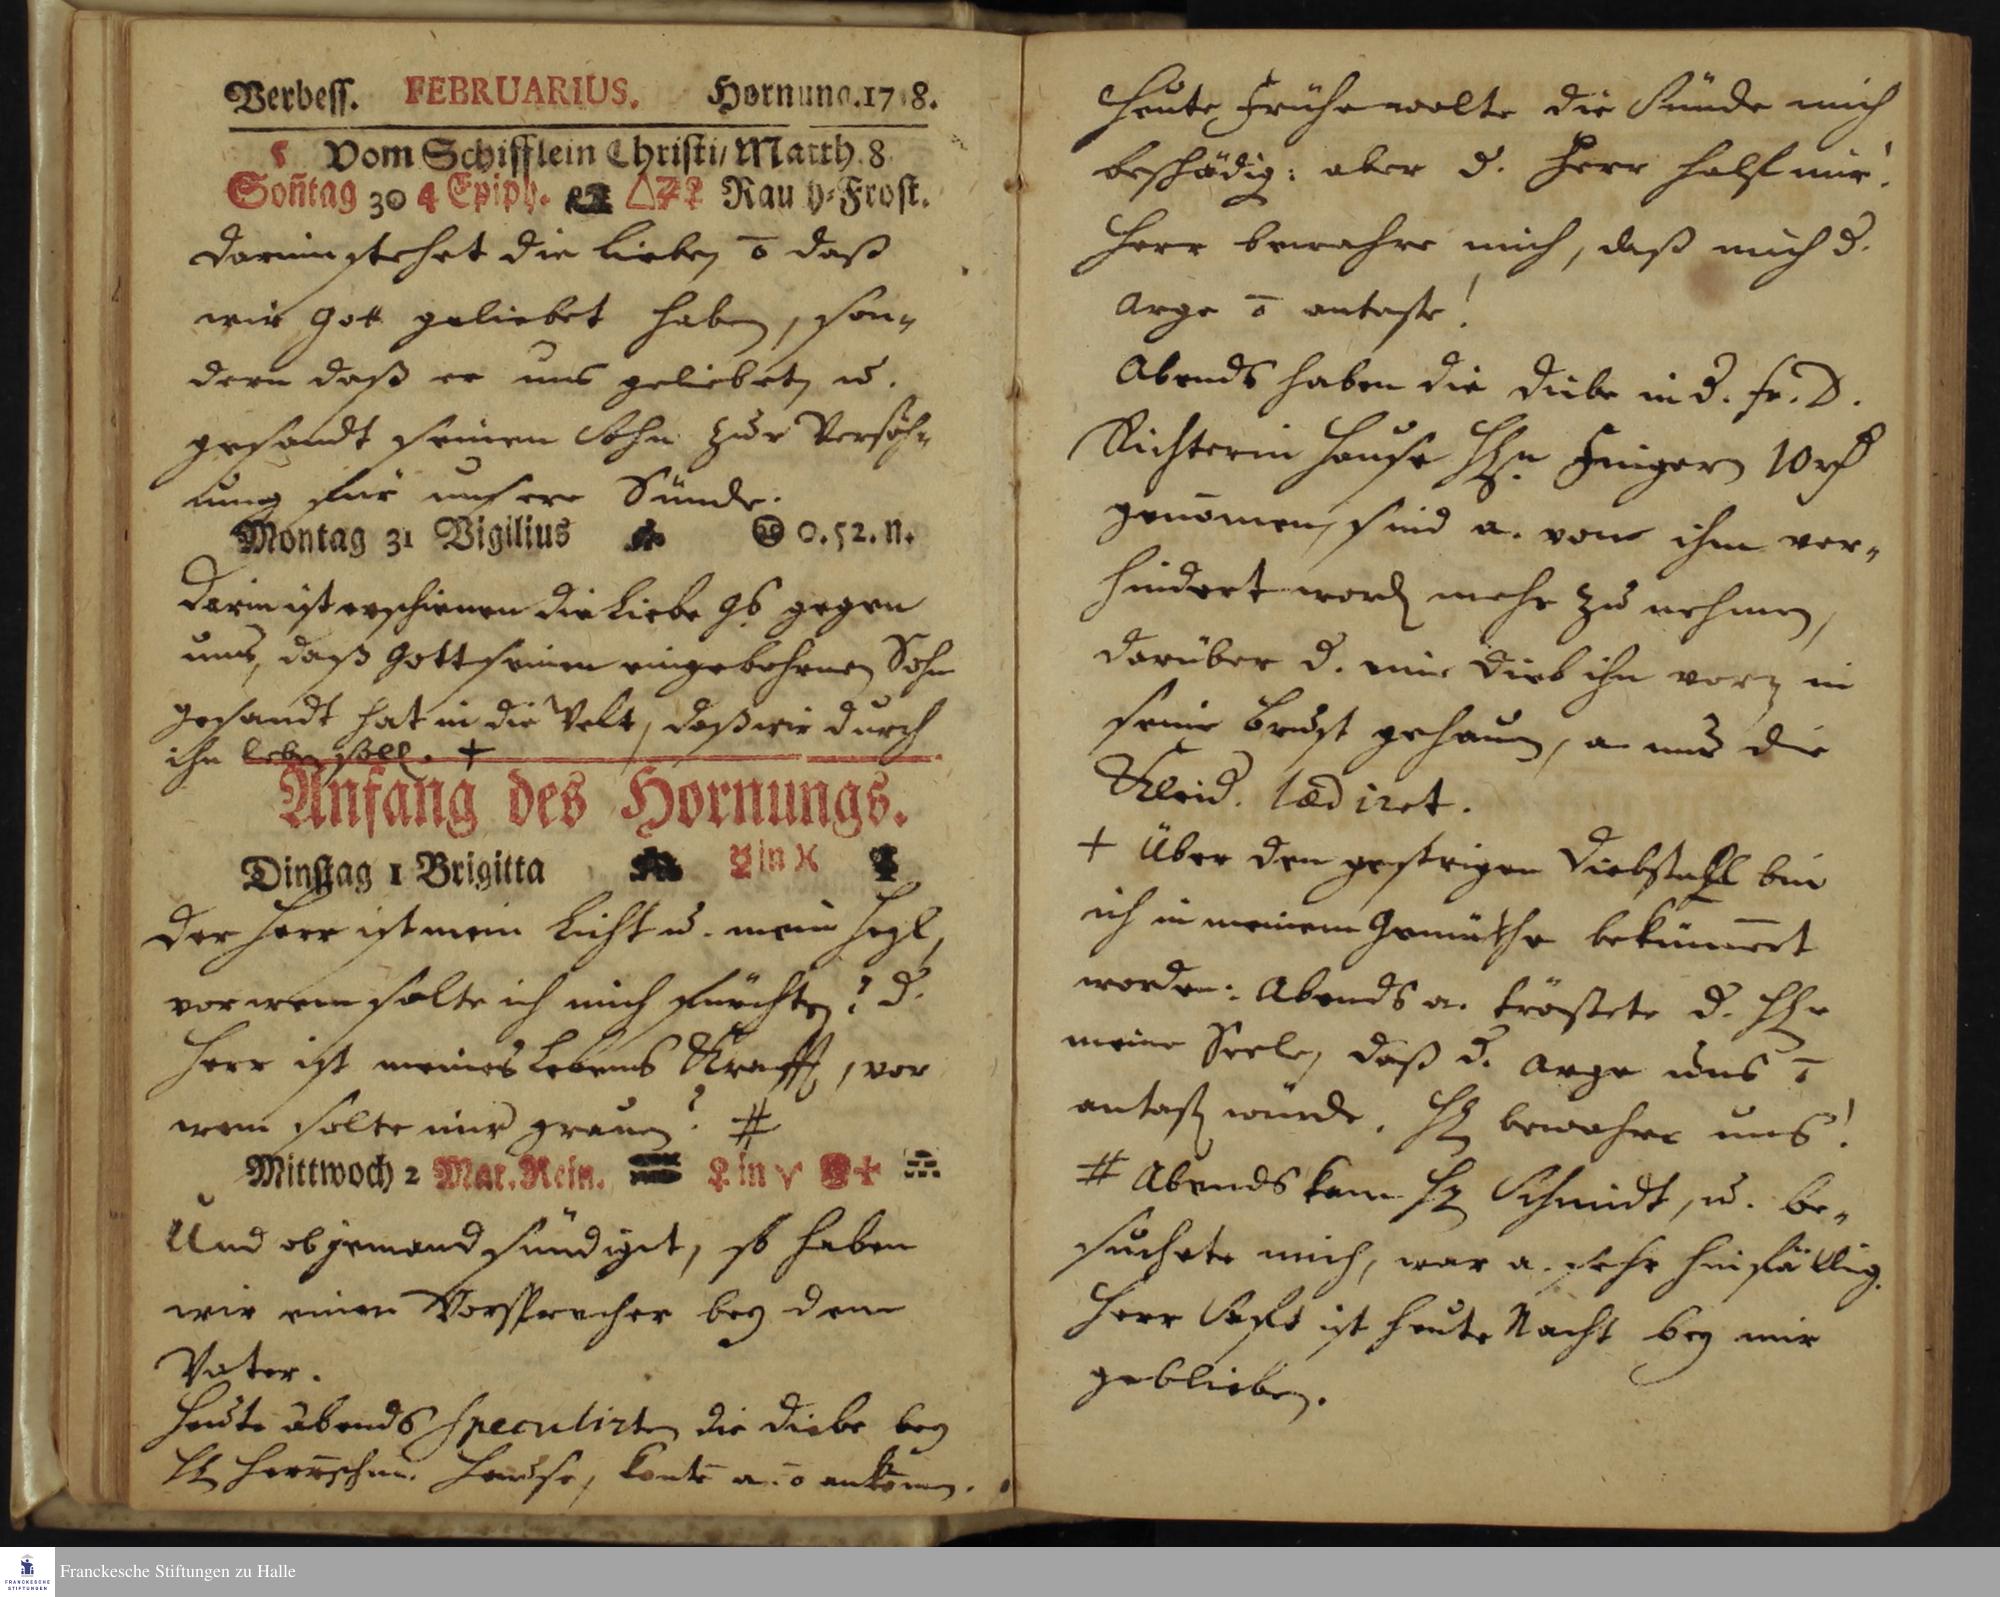 Verbess. FEBRUARIUS. Hornung. 17 8.
5 Vom Schifflein Christi/ Matth. 8
Soñtag 30 4 Epiph. △♃♀ Rauh-Frost.
Darinn stehet die Liebe, ō daß
wir Gott geliebet haben, son-
dern daß er uns geliebet, u.
gesandt seinen Sohn zur Versöh-
nung für unsere Sünde.
Montag 31 Vigilius 0.52.N.
Darin ist erschienen die Liebe Gs gegen
uns, daß Gott seinen eingebohrnen Sohn
gesandt hat in die Welt, daß wir durch
ihn leben soll. +
Anfang des Hornungs.
Dinstag 1 Brigitta ☿ in ♓
Der Herr ist mein Licht u. mein Heyl,
vor wem solte ich mich fürchten? d.
Herr ist meines Lebens Krafft, vor
wem solte mir grauen? #
Mittwoch 2 Mar. Rein. ♀ in ♈
Und ob jemand sündiget, so haben
wir einen Vorsprecher bey dem
Vater.
Heute abends speculirten die Diebe bey
H. Herrschm. Hause, konte a. ō ankom̄en.
Heute Frühe wolte die Sünde mich
beschädig: aber d. Herr halff mir!
Herr bewahre mich, daß mich d.
Arge ō antaste!
Abends haben die Diebe in d. Fr. D.
Richterin Hause Hn. Finger 10 rh
genom̄en, sind a. von ihm ver-
hindert word mehr zu nehmen,
darüber d. eine Dieb ihn vorn in
seine Brust gehauen, a. nur die
Kleid. lædiret.
+ Über den gestrigen Diebstahl bin
ich in meinem Gemüthe bekümert
worden: Abends a. tröstete d. Hr
meine Seele, daß d. Arge uns ō
antasten würde. H. bewahre uns!
# Abends kam H. Schmidt, u. be-
suchete mich, war a. sehr hinfällig.
Herr Saft ist heute Nacht bey mir
geblieben.
Franckesche Stiftungen zu Halle
FRANCKESCHE
STIFTUNGEN